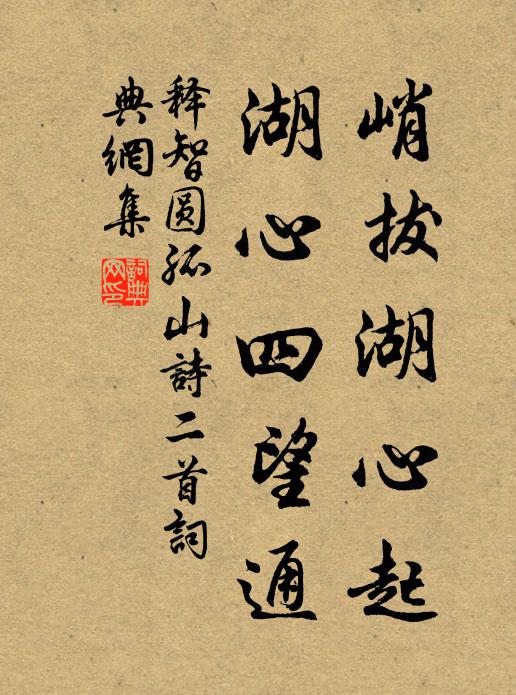 峭拔湖心起
湖心四望通
释智圆孤山詩二首詞
典網集
詞典網印